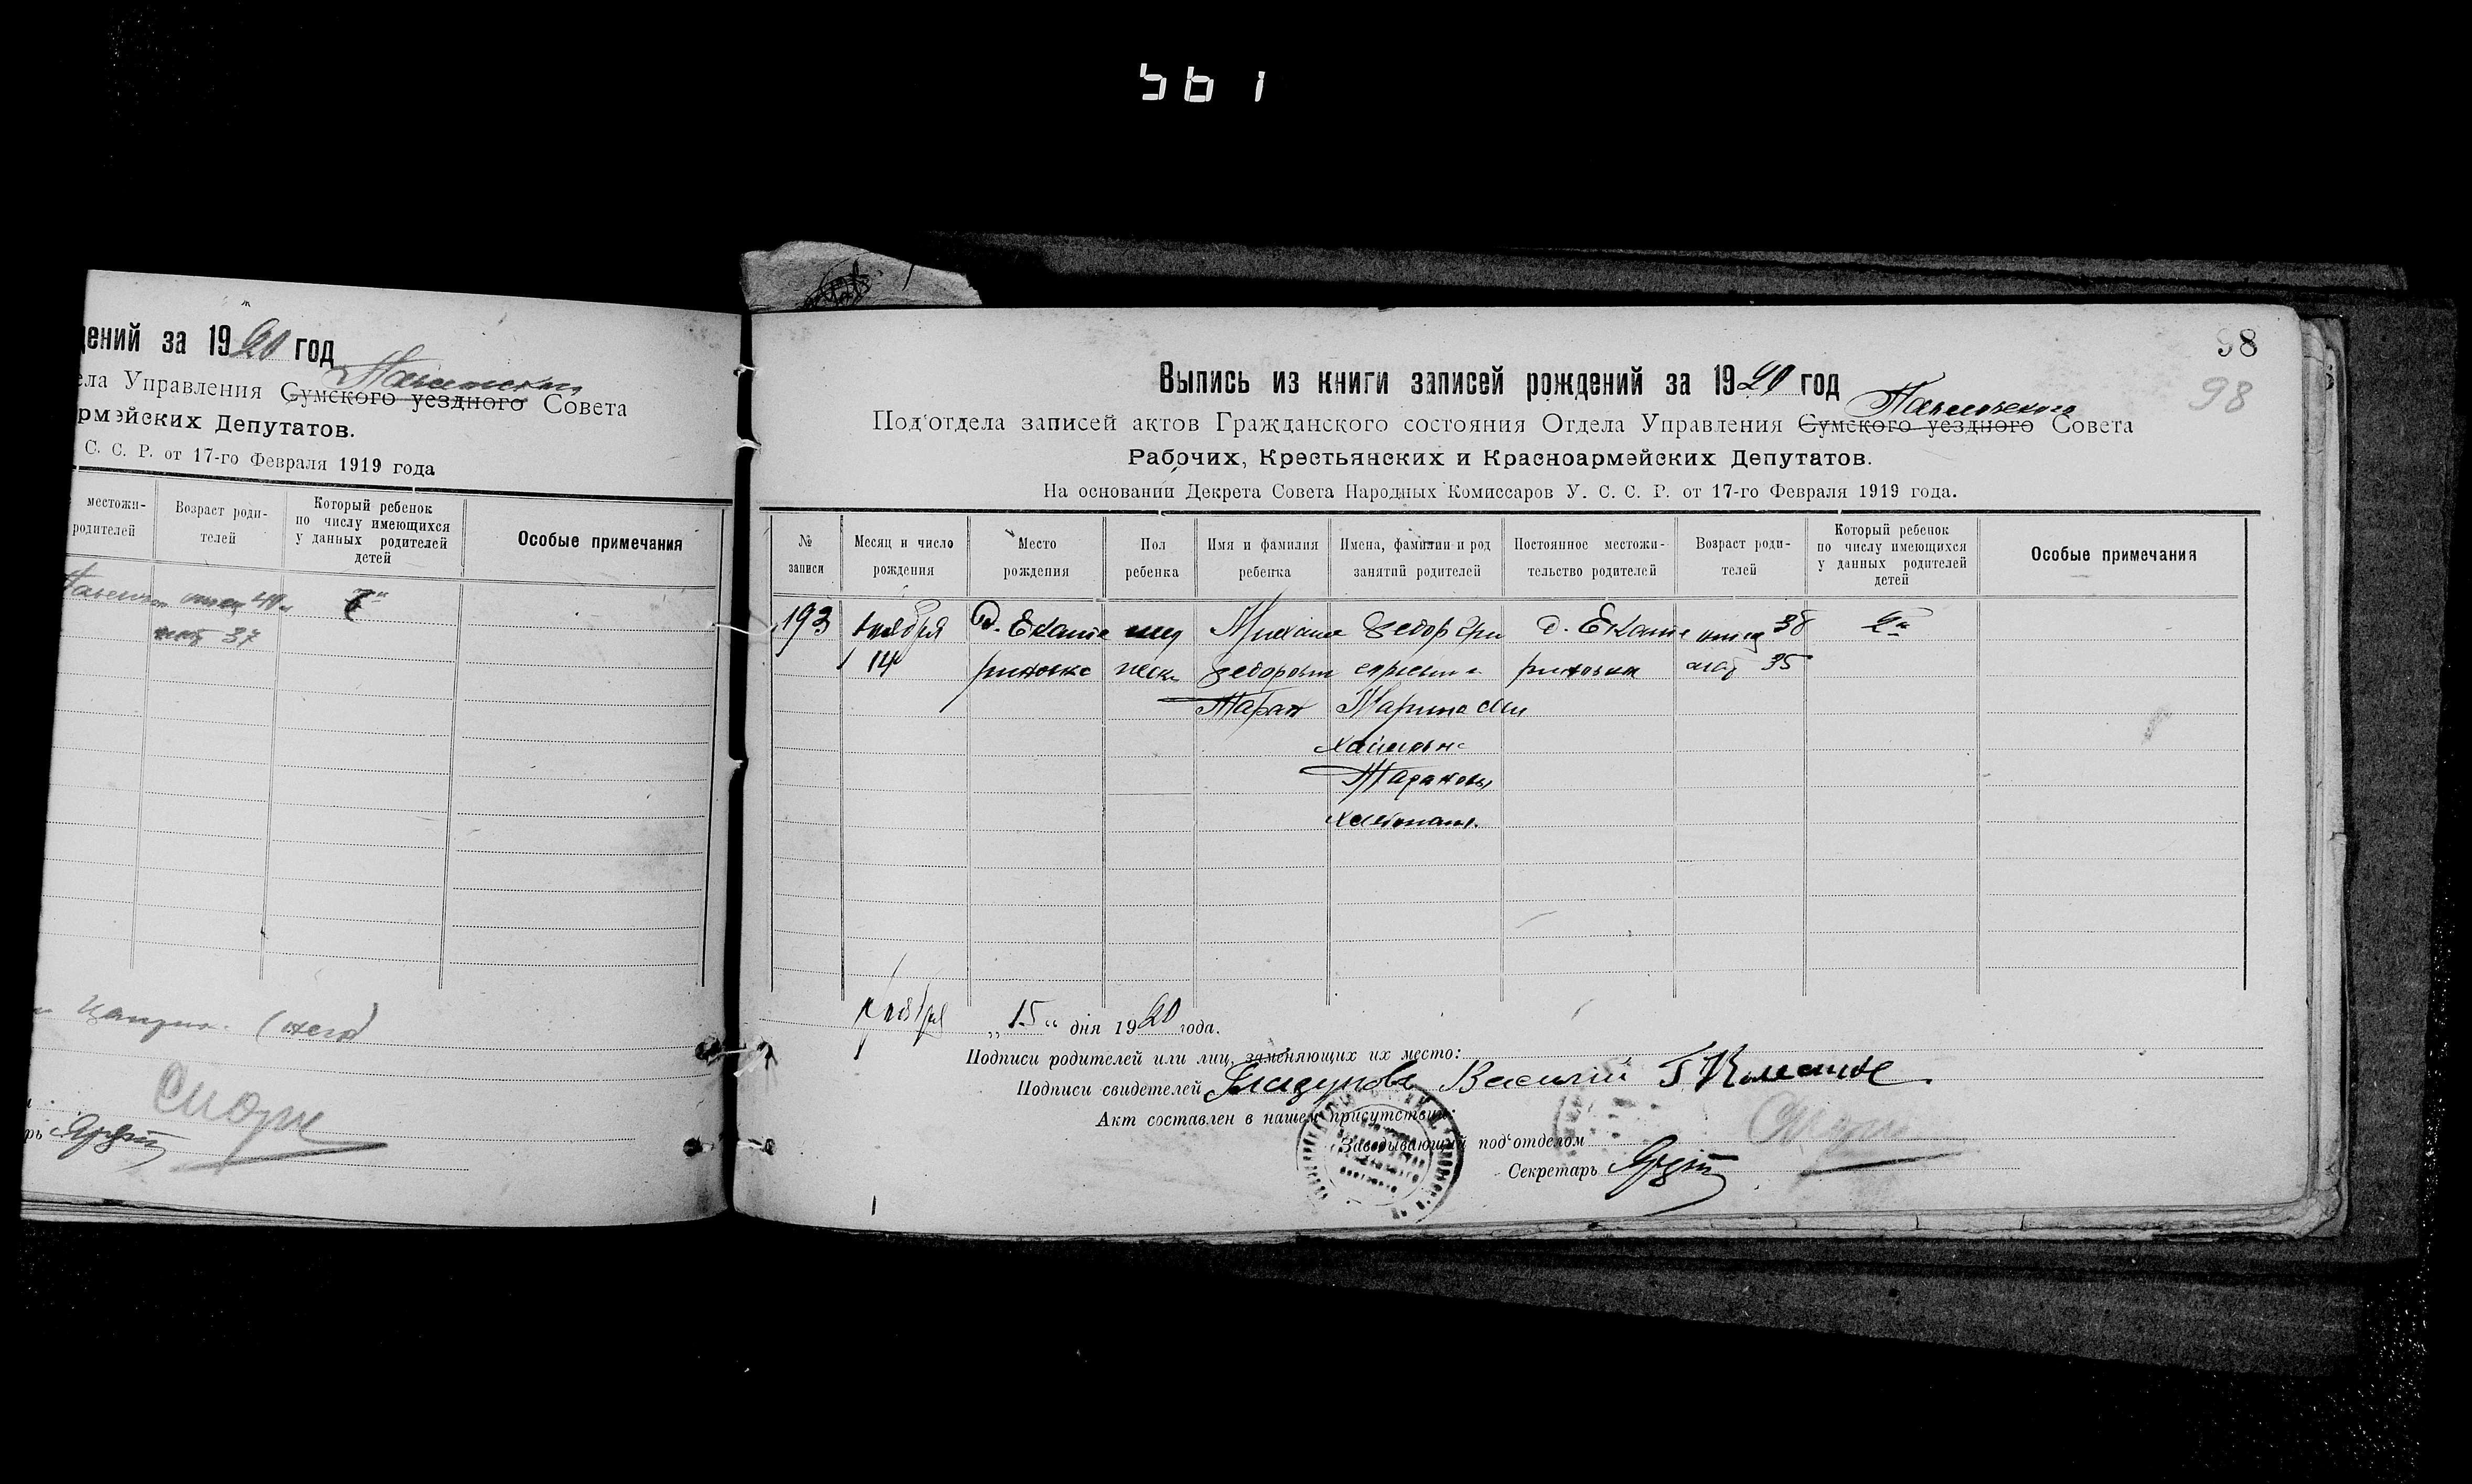 561
дений за 1920 год
ела Управления Сумского уездного Совета
рмейских Депутатов.
С. С. Р. от 17-го Февраля 1919 года
местожи-
родителей
Возраст роди-
телей
Который ребенок
по числу имеющихся
у данных родителей
детей
Особые примечания
отец 40
мат 37
98
98
Выпись из книги записей рождений за 1920 год
Павловского
Под'отдела записей актов Гражданского состояния Отдела Управления Сумского уездного Совета
Рабочих, Крестьянских и Красноармейских Депутатов.
На основании Декрета Совета Народных Комиссаров У. С. С. Р. от 17-го Февраля 1919 года.
№
записи
Месяц и число
рождения
Место
рождения
Пол
ребенка
Имя и фамилия
ребенка
Имена, фамилии и род
занятий родителей
Постоянное местожи-
тельство родителей
Возраст роди-
телей
Который ребенок
по числу имеющихся
у данных родителей
детей
Особые примечания
193
Ноября
14
д. Екате
риновка
муж
ческ.
Михаил
Федоров
Таран
Федор Гри
горьевич
Марина Ми
хайловна
Тарановы
хлебопаш.
д. Екате
риновка
отец 38
мат 35
2й
Ноября „15“ дня 1920 года.
Подписи родителей или лиц, заменяющих их место:
Подписи свидетелей Василий
Акт составлен в нашем присутствии:
Заведывающий под'отделом
Секретарь